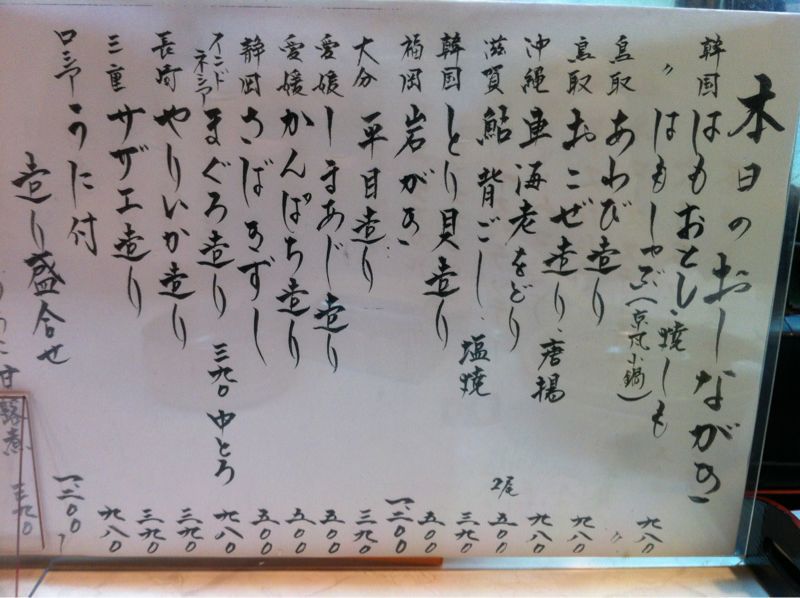 本日のおしながき
韓国 はもおとし、焼しも 九八〇
〃 はもしゃぶ(京風小鍋) 〃
鳥取 あわび造り 九八〇
鳥取 おこぜ造り、唐揚 九八〇
沖縄 車海老をどり 2尾 五〇〇
滋賀 鮎背ごし、塩焼 三九〇
韓国 とり貝造り 五〇〇
福岡 岩がき 一、三〇〇
大分 平目造り 三九〇
愛媛 しまあじ造り 五〇〇
愛媛 かんぱち造り 五〇〇
静岡 さばきずし 五〇〇
インドネシア まぐろ造り 三九〇 中とろ 九八〇
長崎 やりいか造り 三九〇
三重 サザエ造り 三九〇
ロシア うに付 九八〇
造り盛合せ 一、三〇〇〜
甘露煮 三九〇